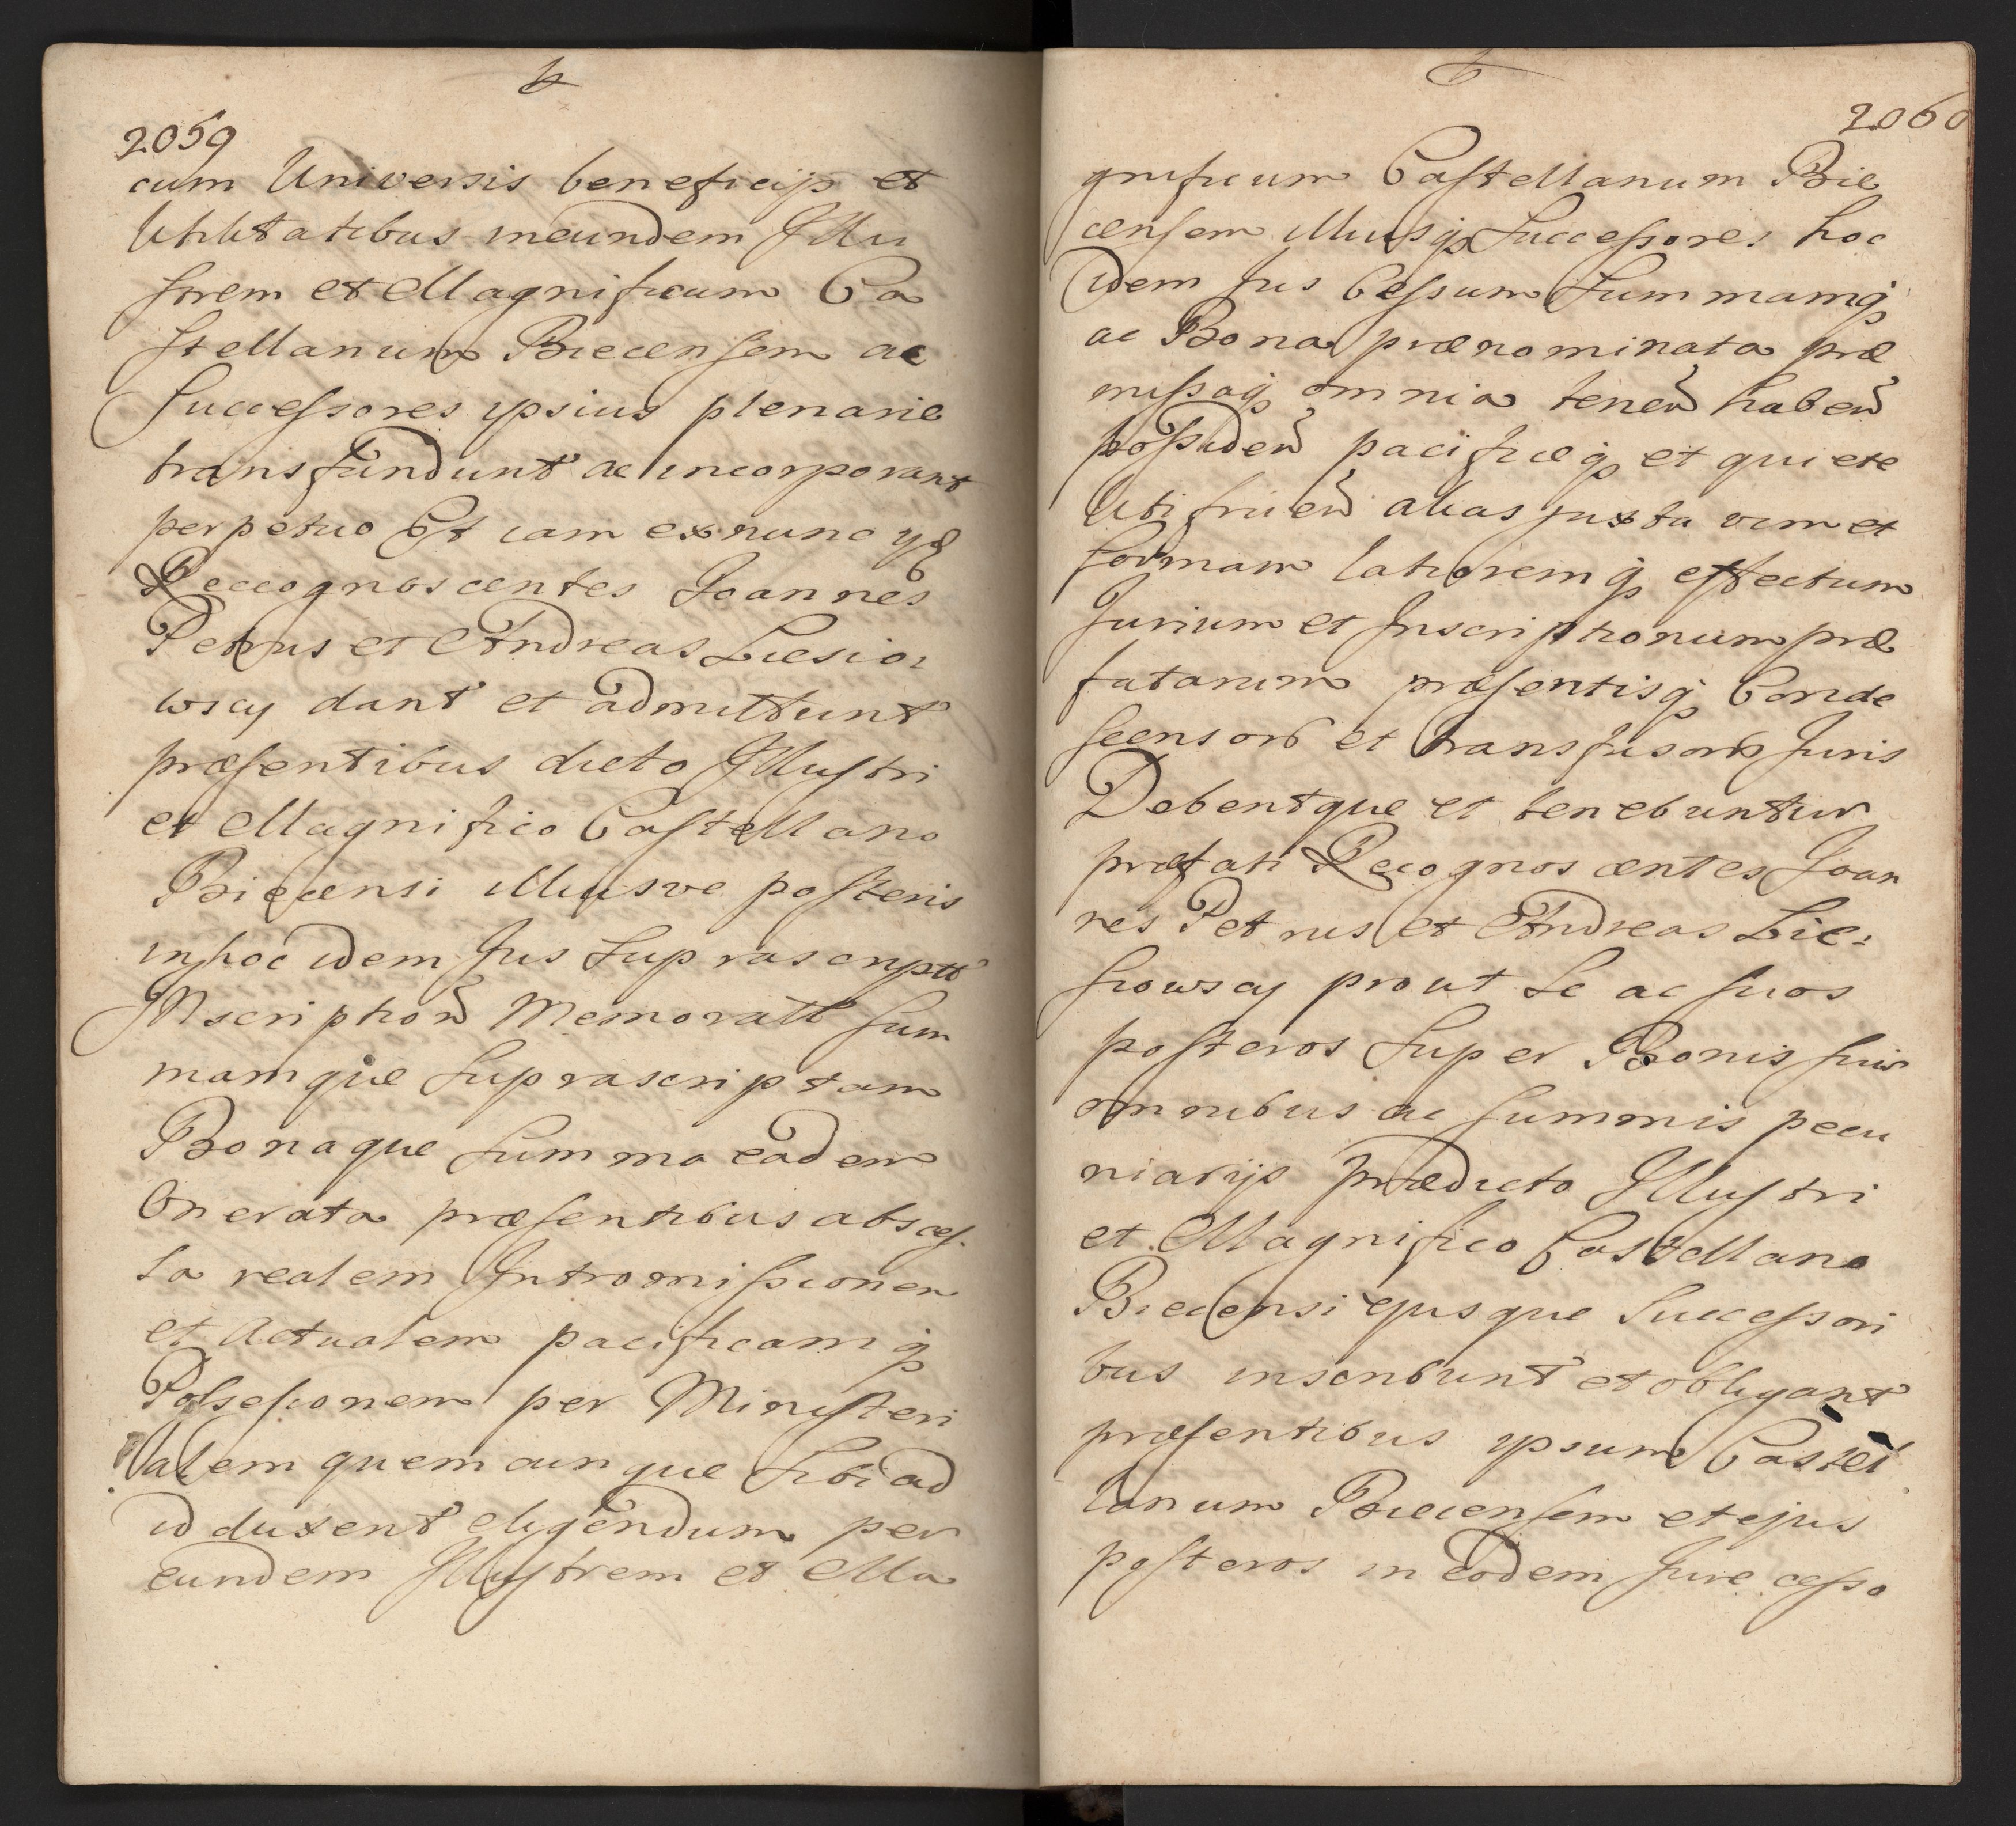 2059
cum Universis beneficijs et
Utilitatibus ineundem Illu
strem et Magnificum Ca
stellanum Biecensem ac
Successores ipsius plenarie
transfundunt ac incorporant
perpetuo Et iam exnunc
Reccognoscentes Joannes
Petrus et Andreas Liesio
wscy dant et admittunt
præsentibus dicto Illustri
et Magnifico Castellano
Biecensi illiusve posteris
inhoc idem Jus Suprascriptt
Inscription Memoratt Sum
mamque Suprascriptam
Bonaque Summa eadem
Onerata præsentibus absces
sa realem Intromissionem
et Actualem pacificamq
Possessionem per Ministeri
alem quemcunque Sibi ad
id duxerit eligendum per
eundem Illustrem et Ma
2060
gnificum Castellanum Bie
censem illiusq Successores hoc
idem Jus Cessum Summamq
ac Bona prænominata præ
missaq omnia tenen haben
possiden pacificeq et quiete
Uti fruen alias juxta vim et
formam latioremq effectum
Jurium et Inscriptionum præ
fatarum præsentisq Conde
scensorb et transfusorb Juris
Debentque et tenebuntur
præfati Recognoscentes Joan
nes Petrus et Andreas Lie:
siowscy prout Se ac suos
posteros Super Bonis suis
omnibus ac summis pecu
niarijs prædicto Illustri
et Magnifico Castellano
Biecensi ejusque Successori
bus inscribunt et obligant
præsentibus ipsum Castel
lanum Biecensem et ejus
posteros in Eodem Jure cesso